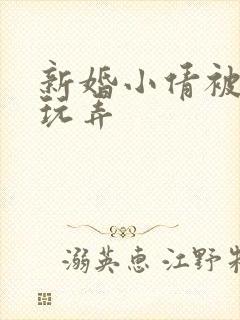 新婚小倩被
玩弄
溺英惠 江野